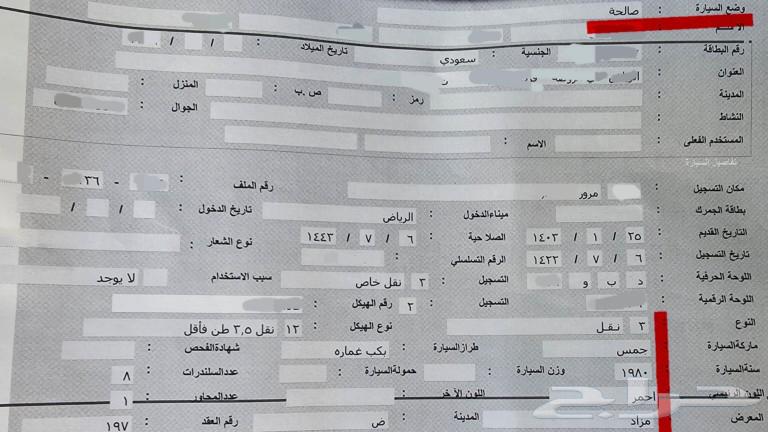 وضع السيارة : صالحة
الاسم
رقم البطاقة : الجنسية : سعودي تاريخ الميلاد : / /
العنوان :
المدينة : رمز : ص.ب : المنزل :
النشاط : الجوال :
المستخدم الفعلى : الاسم :
تفاصيل السيارة
مكان التسجيل : مرور رقم الملف - ٠٣٦ -
بطاقة الجمرك : ميناءالدخول : الرياض تاريخ الدخول : / /
التاريخ القديم : ٢٥ / ١ / ١٤٠٣ الصلاحية : ٦ / ٧ / ١٤٤٣ نوع الشعار :
تاريخ التسجيل : ٦ / ٧ / ١٤٢٢ الرقم التسلسلي :
اللوحة الحرفية : د ب و التسجيل : ٣ نقل خاص سبب الاستخدام لا يوجد
اللوحة الرقمية : التسجيل : ٢ رقم الهيكل :
النوع : ٣ نقل نوع الهيكل : ١٢ نقل ٣,٥ طن فأقل
ماركةالسيارة : جمس طرازالسيارة : بكب غماره شهادةالفحص :
سنةالسيارة : ١٩٨٠ وزن السيارة : حمولةالسيارة : عددالسلندرات : ٨
اللون الرئيسي : احمر اللون الآخر : عددالمحاور : ١
المعرض : مزاد المدينة : ض رقم العقد : ١٩٧
حراج